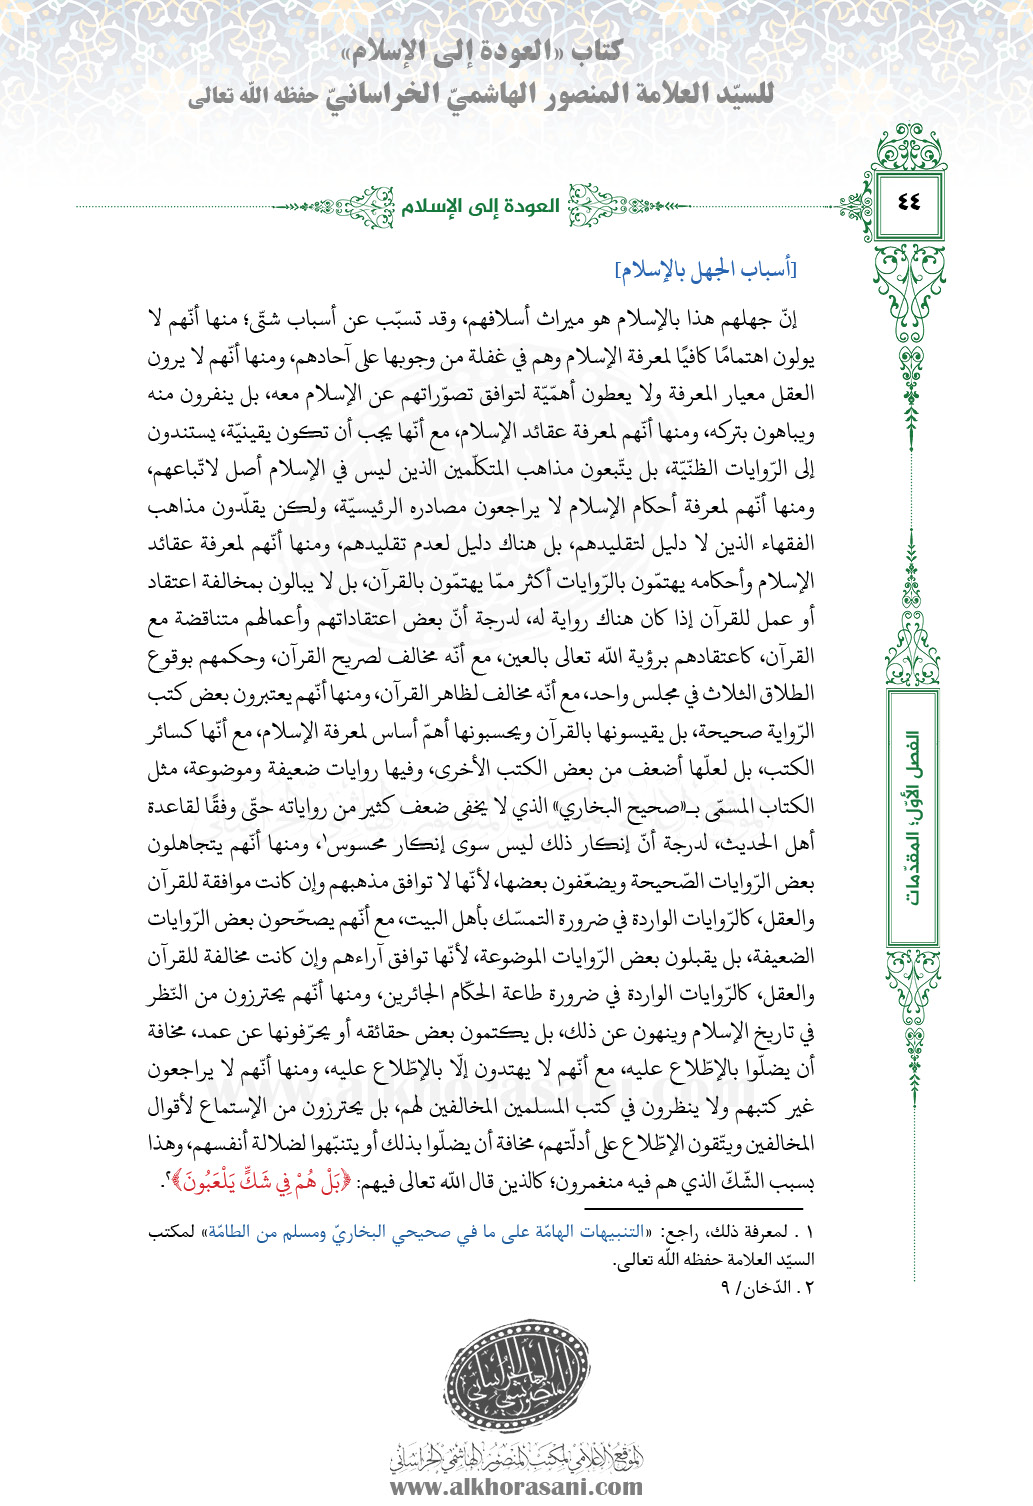 كتاب «العودة إلى الإسلام»
للسيّد العلامة المنصور الهاشميّ الخراسانيّ حفظه الله تعالى
٤٤
العودة إلى الإسلام
[أسباب الجهل بالإسلام]
إنّ جهلهم هذا بالإسلام هو ميراث أسلافهم، وقد تسبّب عن أسباب شتّى؛ منها أنّهم لا
يولون اهتمامًا كافيًا لمعرفة الإسلام وهم في غفلة من وجوبها على آحادهم، ومنها أنّهم لا يرون
العقل معيار المعرفة ولا يعطون أهمّيّة لتوافق تصوّراتهم عن الإسلام معه، بل ينفرون منه
ويباهون بتركه، ومنها أنّهم لمعرفة عقائد الإسلام، مع أنّها يجب أن تكون يقينيّة، يستندون
إلى الرّوايات الظنّيّة، بل يتّبعون مذاهب المتكلّمين الذين ليس في الإسلام أصل لاتّباعهم،
ومنها أنّهم لمعرفة أحكام الإسلام لا يراجعون مصادره الرئيسيّة، ولكن يقلّدون مذاهب
الفقهاء الذين لا دليل لتقليدهم، بل هناك دليل لعدم تقليدهم، ومنها أنّهم لمعرفة عقائد
الإسلام وأحكامه يهتمّون بالرّوايات أكثر ممّا يهتمّون بالقرآن، بل لا يبالون بمخالفة اعتقاد
أو عمل للقرآن إذا كان هناك رواية له، لدرجة أنّ بعض اعتقاداتهم وأعمالهم متناقضة مع
القرآن، كاعتقادهم برؤية الله تعالى بالعين، مع أنّه مخالف لصريح القرآن، وحكمهم بوقوع
الطلاق الثلاث في مجلس واحد، مع أنّه مخالف لظاهر القرآن، ومنها أنّهم يعتبرون بعض كتب
الرّواية صحيحة، بل يقيسونها بالقرآن ويحسبونها أهمّ أساس لمعرفة الإسلام، مع أنّها كسائر
الكتب، بل لعلّها أضعف من بعض الكتب الأخرى، وفيها روايات ضعيفة وموضوعة، مثل
الكتاب المسمّى بـ«صحيح البخاري» الذي لا يخفى ضعف كثير من رواياته حتّى وفقًا لقاعدة
أهل الحديث، لدرجة أنّ إنكار ذلك ليس سوى إنكار محسوس١، ومنها أنّهم يتجاهلون
بعض الرّوايات الصّحيحة ويضعّفون بعضها، لأنّها لا توافق مذهبهم وإن كانت موافقة للقرآن
والعقل، كالرّوايات الواردة في ضرورة التمسّك بأهل البيت، مع أنّهم يصحّحون بعض الرّوايات
الضعيفة، بل يقبلون بعض الرّوايات الموضوعة، لأنّها توافق آراءهم وإن كانت مخالفة للقرآن
والعقل، كالرّوايات الواردة في ضرورة طاعة الحكّام الجائرين، ومنها أنّهم يحترزون من النّظر
في تاريخ الإسلام وينهون عن ذلك، بل يكتمون بعض حقائقه أو يحرّفونها عن عمد، مخافة
أن يضلّوا بالإطّلاع عليه، مع أنّهم لا يهتدون إلّا بالإطّلاع عليه، ومنها أنّهم لا يراجعون
غير كتبهم ولا ينظرون في كتب المسلمين المخالفين لهم، بل يحترزون من الإستماع لأقوال
المخالفين ويتّقون الإطّلاع على أدلّتهم، مخافة أن يضلّوا بذلك أو يتنبّهوا لضلالة أنفسهم، وهذا
بسبب الشّكّ الذي هم فيه منغمرون؛ كالذين قال الله تعالى فيهم: ﴿بَلْ هُمْ فِي شَكٍّ يَلْعَبُونَ﴾٢.
١ . لمعرفة ذلك، راجع: «التنبيهات الهامّة على ما في صحيحي البخاريّ ومسلم من الطامّة» لمكتب
السيّد العلامة حفظه الله تعالى.
٢ . الدّخان/ ٩
الفصل الأوّل؛ المقدّمات
المنصور الهاشمي الخراساني
الموقع الإعلامي لمكتب المنصور الهاشمي الخراساني
www.alkhorasani.com